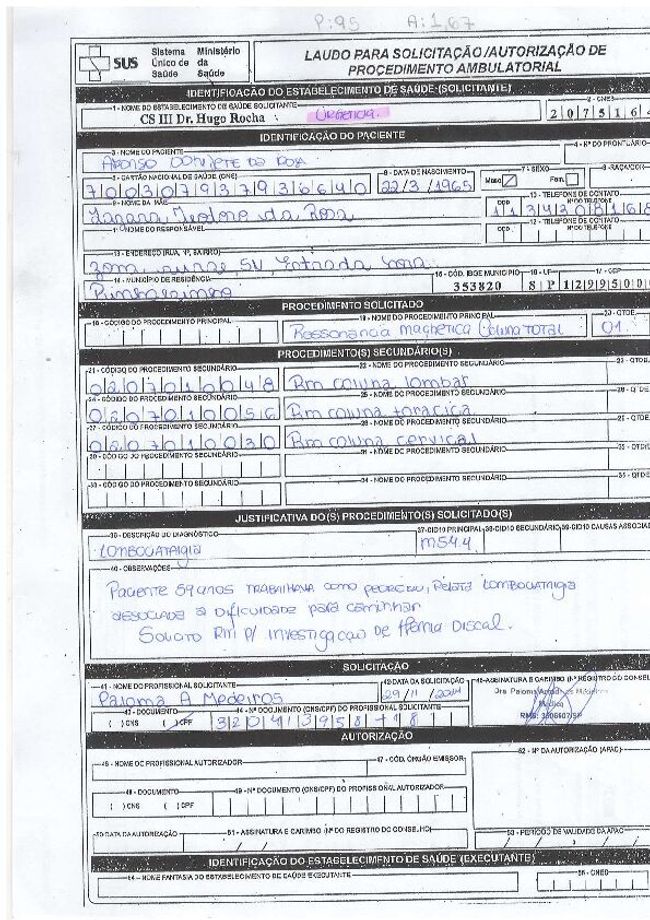 P:95 A:1,67
SUS Sistema Único de Saúde Ministério da Saúde
LAUDO PARA SOLICITAÇÃO/AUTORIZAÇÃO DE PROCEDIMENTO AMBULATORIAL
IDENTIFICAÇÃO DO ESTABELECIMENTO DE SAÚDE (SOLICITANTE)
1 - NOME DO ESTABELECIMENTO DE SAÚDE SOLICITANTE 2 - CNES
CS III Dr. Hugo Rocha URGENCIA. 2075164
IDENTIFICAÇÃO DO PACIENTE
3 - NOME DO PACIENTE 4 - Nº DO PRONTUÁRIO
5 - CARTÃO NACIONAL DE SAÚDE (CNS) 6 - DATA DE NASCIMENTO 7 - SEXO 8 - RAÇA/COR
700307937936640 22/3/1965 Masc Fem.
9 - NOME DA MÃE 10 - TELEFONE DE CONTATO
DDD Nº DO TELEFONE
da Rosa 11 34308168
11 - NOME DO RESPONSÁVEL 12 - TELEFONE DE CONTATO
DDD Nº DO TELEFONE
13 - ENDEREÇO (RUA, Nº, BAIRRO)
zona SN Entrada
14 - MUNICÍPIO DE RESIDÊNCIA 15 - CÓD. IBGE MUNICÍPIO 16 - UF 17 - CEP
353820 SP 1299500
PROCEDIMENTO SOLICITADO
18 - CÓDIGO DO PROCEDIMENTO PRINCIPAL 19 - NOME DO PROCEDIMENTO PRINCIPAL 20 - QTDE.
Ressonancia magnetica Coluna TOTAL 01
PROCEDIMENTO(S) SECUNDÁRIO(S)
21 - CÓDIGO DO PROCEDIMENTO SECUNDÁRIO 22 - NOME DO PROCEDIMENTO SECUNDÁRIO 23 - QTDE.
0207010048 Rm coluna lombar
24 - CÓDIGO DO PROCEDIMENTO SECUNDÁRIO 25 - NOME DO PROCEDIMENTO SECUNDÁRIO 26 - QTDE
0207010056 Rm coluna toracica
27 - CÓDIGO DO PROCEDIMENTO SECUNDÁRIO 28 - NOME DO PROCEDIMENTO SECUNDÁRIO 29 - QTDE.
0207010030 Rm coluna cervical
30 - CÓDIGO DO PROCEDIMENTO SECUNDÁRIO 31 - NOME DO PROCEDIMENTO SECUNDÁRIO 32 - QTDE
33 - CÓDIGO DO PROCEDIMENTO SECUNDÁRIO 34 - NOME DO PROCEDIMENTO SECUNDÁRIO 35 - QTDE
JUSTIFICATIVA DO(S) PROCEDIMENTO(S) SOLICITADO(S)
36 - DESCRIÇÃO DO DIAGNÓSTICO 37 - CID10 PRINCIPAL 38 - CID10 SECUNDÁRIO 39 - CID10 CAUSAS ASSOCIA
LOMBOCIATALGIA M54.4
40 - OBSERVAÇÕES
Paciente 59 anos TRABALHAVA como pedreiro, Relata LOMBOCIATALGIA
associada a Dificuldade para caminhar
Solicito RM P/ investigação de Hérnia Discal.
SOLICITAÇÃO
41 - NOME DO PROFISSIONAL SOLICITANTE 42 - DATA DA SOLICITAÇÃO 45 - ASSINATURA E CARIMBO (Nº REGISTRO DO CONSEL
Paloma A Medeiros 29/11/2024 Dra. Paloma Medeiros
Médica
43 - DOCUMENTO 44 - Nº DOCUMENTO (CNS/CPF) DO PROFISSIONAL SOLICITANTE
( ) CNS ( ) CPF RMS:
AUTORIZAÇÃO
46 - NOME DO PROFISSIONAL AUTORIZADOR 47 - CÓD. ÓRGÃO EMISSOR 52 - Nº DA AUTORIZAÇÃO (APAC)
48 - DOCUMENTO 49 - Nº DOCUMENTO (CNS/CPF) DO PROFISSIONAL AUTORIZADOR
( ) CNS ( ) CPF
50 DATA DA AUTORIZAÇÃO 51 - ASSINATURA E CARIMBO (Nº DO REGISTRO DO CONSELHO) 53 - PERÍODO DE VALIDADE DA APAC
IDENTIFICAÇÃO DO ESTABELECIMENTO DE SAÚDE (EXECUTANTE)
54 - NOME FANTASIA DO ESTABELECIMENTO DE SAÚDE EXECUTANTE 55 - CNES